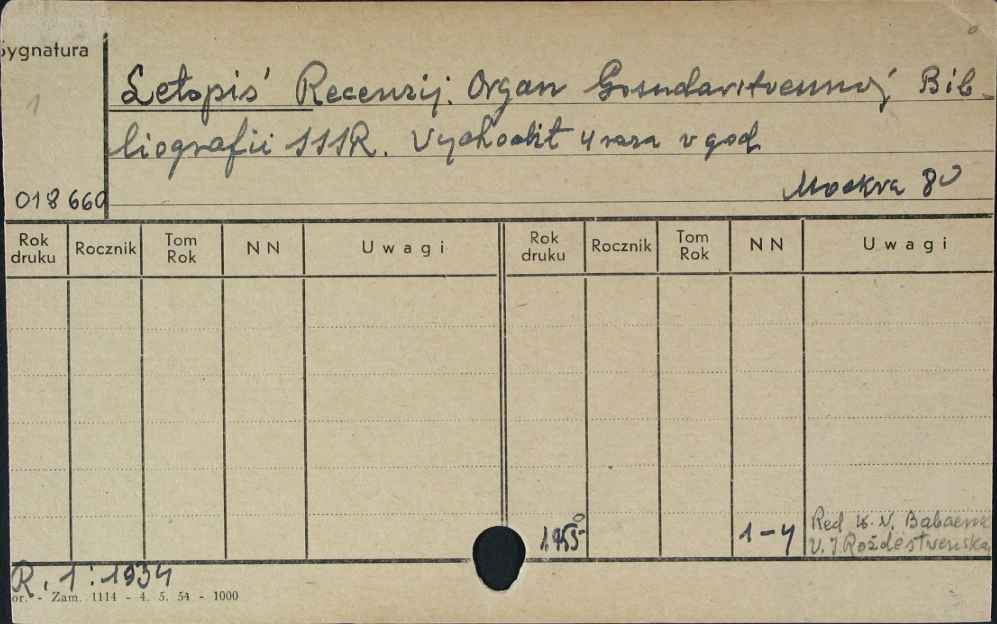 Sygnatura
1
Letopis' Recenzij. Organ Gosudarstvennoj Bib-
liografii SSSR. Vychodit 4 raza v god
018660
Moskva 8º
Rok druku Rocznik Tom Rok NN Uwagi Rok druku Rocznik Tom Rok NN Uwagi
1955 1-4 Red K. N. Babaeva
V. I Roždestvenska
R. 1:1934
or. - Zam. 1114 - 4. 5. 54 - 1000